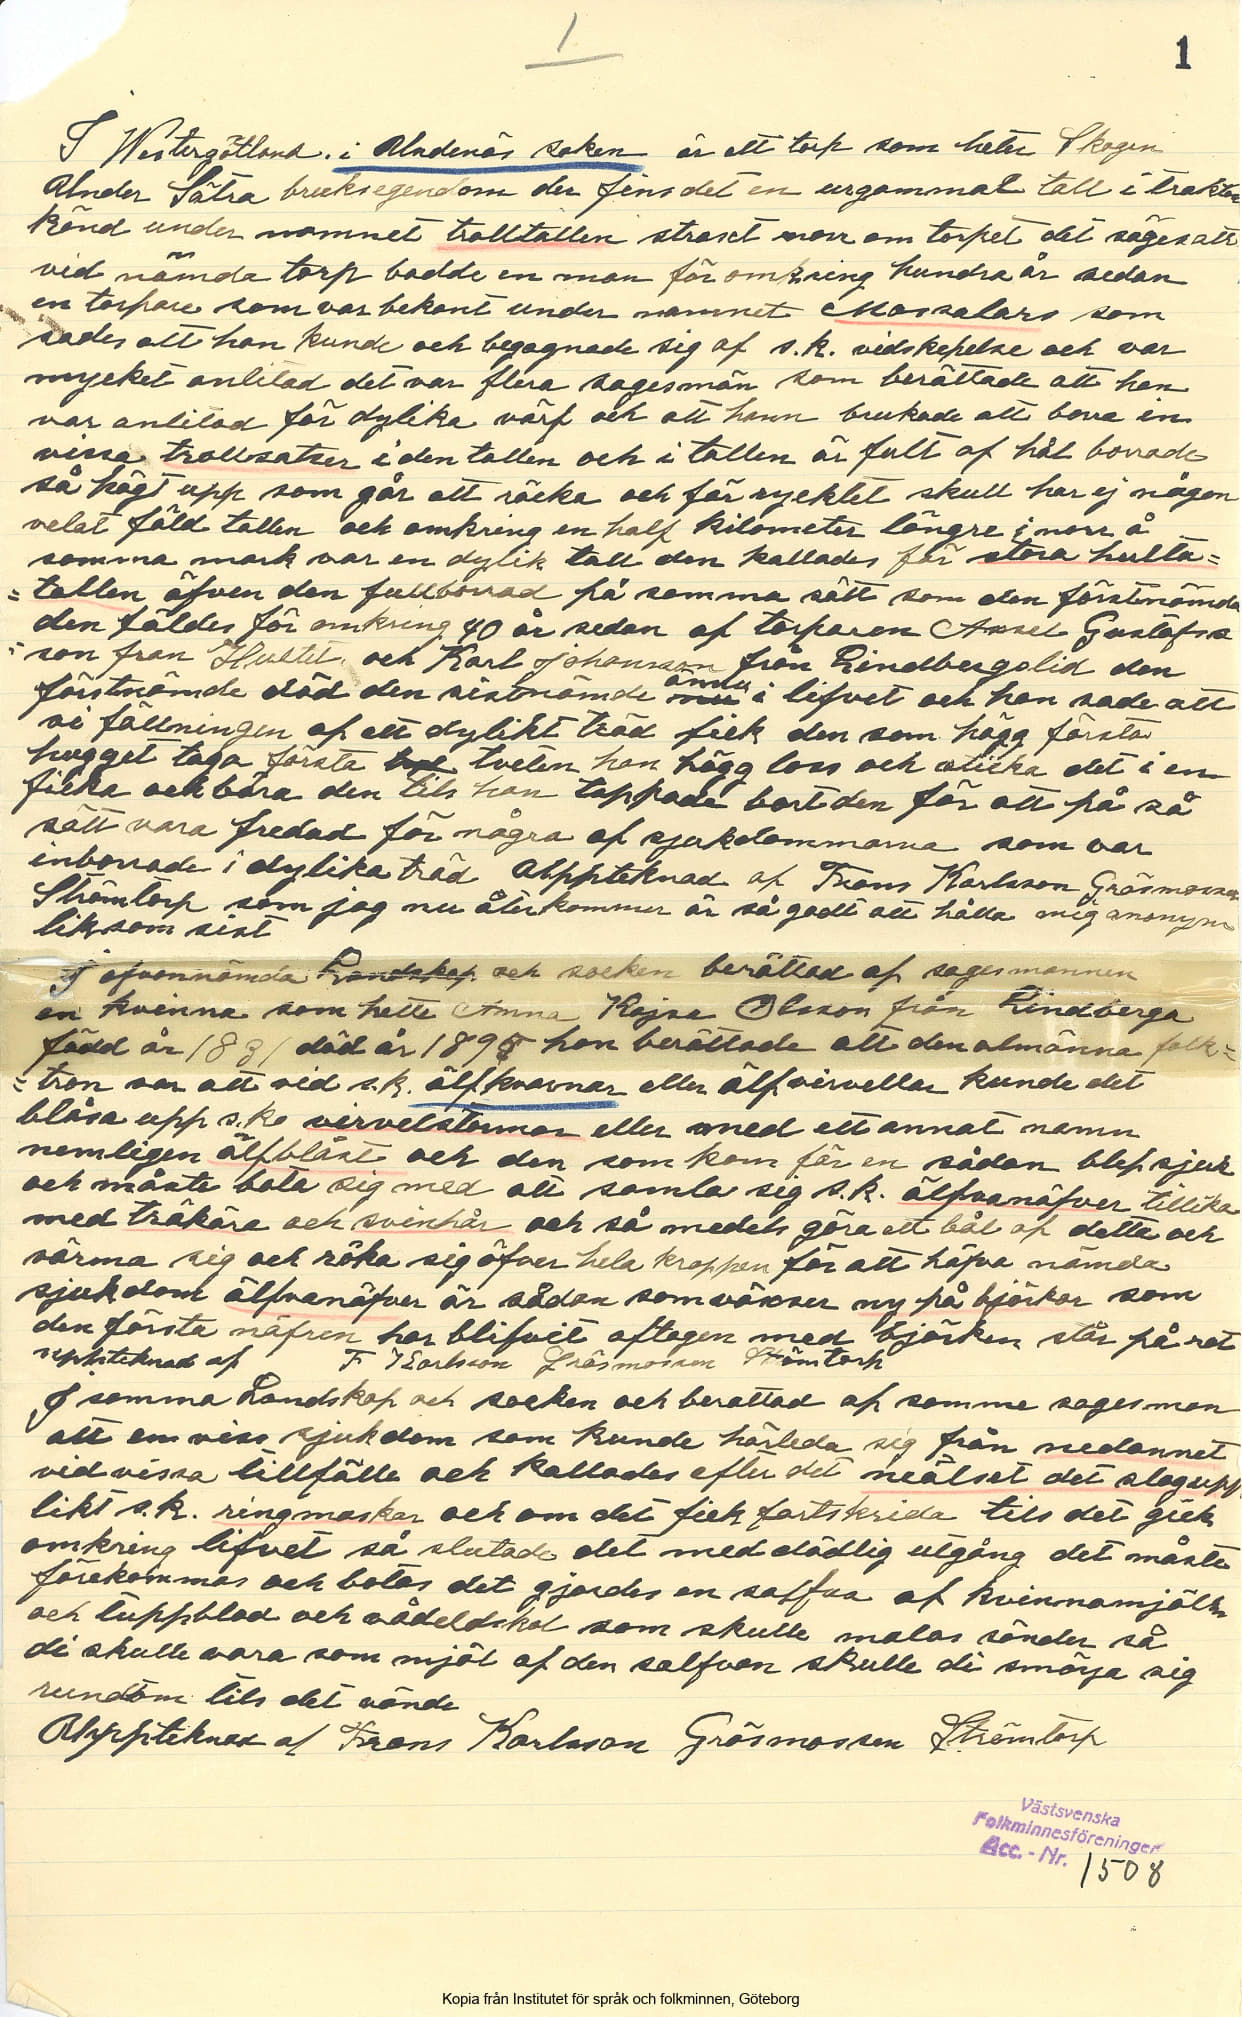 1.
1
I Westergötland. i Undenäs soken är ett torp som heter Skogen
Under Sätra bruksegendom der fins det en urgammal tall i trakten
känd under namnet trolltallen straxt norr om torpet det säges att
vid nämda torp bodde en man för omkring hundra år sedan
en torpare som var bekant under namnet Mossalars som
sades att han kunde och begagnade sig af s.k. vidskepelse och var
mycket anlitad det var flera sagesmän som berättade att han
var anlitad för dylika värf och att hann brukade att bora in
vissa trollsatser i den tallen och i tallen är fult af hål borrade
så högt upp som går att räcka och för rycktet skull har ej någon
velat fäld tallen och omkring en half kilometer längre i norr å
samma mark var en dylik tall den kallades för stora hulta=
=tallen äfven den fullborrad på samma sätt som den förstnämda
den fäldes för omkring 40 år sedan af torparen Axsel Gustafss
son från Hultet och Karl Johansson från Lindbergslid den
förstnämde död den sistnämde ännu i lifvet och han sade att
vi fällningen af ett dylikt träd fick den som högg första
hugget taga första tveten han högg loss och sticka det i en
ficka och bära den tils han tappade bort den för att på så
sätt vara fredad för några af sjukdommarna som var
inborrade i dylika träd Uppteknad af Frans Karlsson Gräsmossen
Strömtorp som jag nu återkommer är så godt att hålla mig anonym
liksom sist
I ofvannämda Landskap och socken berättad af sagesmannen
en kvinna som hette Anna Kajsa Olsson från Lindberga
född år 1831 död år 1895 hon berättade att den almänna folk=
=tron var att vid s.k. älfkvarnar eller älfvirvellar kunde det
blåsa upp s.k. virvelstormar eller med ett annat namn
nemligen älfbläst och den som kom för en sådan blef sjuk
och måste bota sig med att samla sig s.k. älfvanäfver tillika
med träkåra och svinhår och så medels göra ett bål af dette och
värma sig och röka sig öfver hela kroppen för att häfva nämda
sjukdom älfvanäfver är sådan som växser ny på björkar som
den första näfren har blifvit aftagen med björken står på rot
uppteknad af F Karlsson Gräsmossen Strömtorp
I samma Landskap och socken och berättad af samme sagesman
att en viss sjukdom som kunde härleda sig från nedannet
vid vissa tillfälle och kallades efter det neälset det slog upp
likt s.k. ringmaskar och om det fick fortskrida tils det gick
omkring lifvet så slutade det med dödlig utgång det måste
förekommas och botas det gjordes en salfva af kvinnamjölk
och tuppblod och vådeldskol som skulle malas sönder så
di skulle vara som mjöl af den salfvan skulle di smörja sig
rundtom tils det vände
Uppteknad af Frans Karlsson Gräsmossen Strömtorp
Västsvenska
Folkminnesföreningen
Acc. - Nr. 1508
Kopia från Institutet för språk och folkminnen, Göteborg